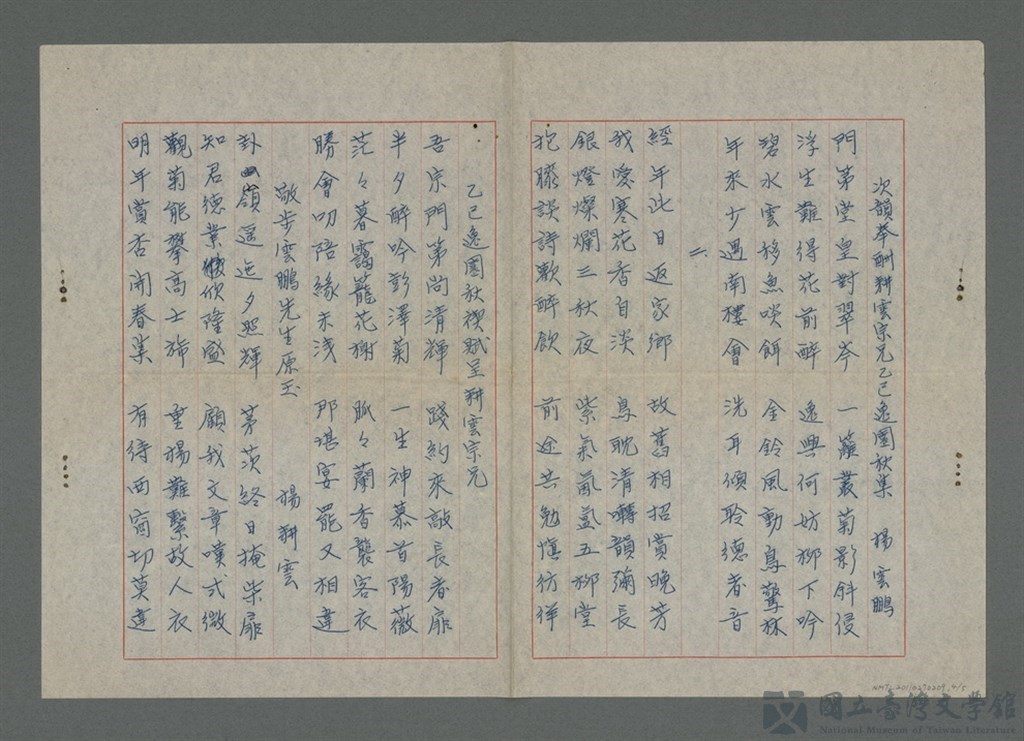 次韻奉酬耕雲宗兄乙巳逸園秋集 楊雲鵬
門第堂皇對翠岑 一籬叢菊影斜侵
浮生難得花前醉 逸興何妨柳下吟
碧水雲移魚啖餌 金鈴風動鳥驚林
年來少遇南樓會 洗耳傾聆德者音
二、
經年此日返家鄉 故舊相招賞晚芳
我愛寒花香自淡 鳥耽清囀韻彌長
銀燈燦爛三秋夜 紫氣氤氳五柳堂
抱膝談詩歡醉飲 前途共勉慎彷徉
乙巳逸園秋禊賦呈耕雲宗兄
吾宗門第尚清輝 踐約來敲長者扉
半夕醉吟彭澤菊 一生神慕首陽薇
茫々暮靄籠花榭 脈々蘭香襲客衣
勝會叨陪緣未淺 那堪宴罷又相違
敬步雲鵬先生原玉 楊耕雲
卦嶺遥迤夕照輝 茅茨終日掩柴扉
知君德業欣隆盛 顧我文章嘆式微
觀菊能攀高士旆 垂楊難繫故人衣
明年賞否開春集 有待西窗切莫違
NMTL20110270209_4/5
國立臺灣文學館
National Museum of Taiwan Literature